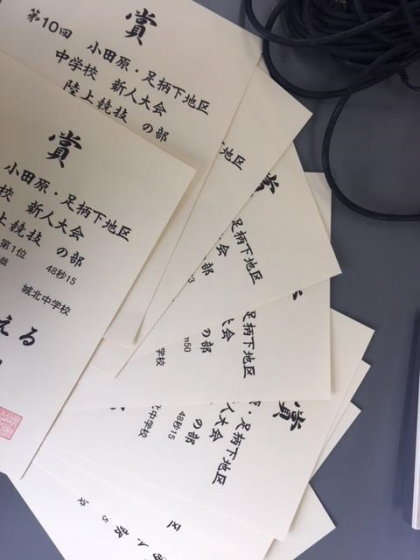 賞
第10回 小田原・足柄下地区
中学校 新人大会
陸上競技 の部
賞
小田原・足柄下地区
校 新人大会
上競技 の部
第1位 48秒15
城北中学校
える
地区
賞
足柄下地区
大会
の部
足柄下地区
会
の部
m50
学校
賞
足柄下地区
新人大会
の部
48秒15
中学校
区